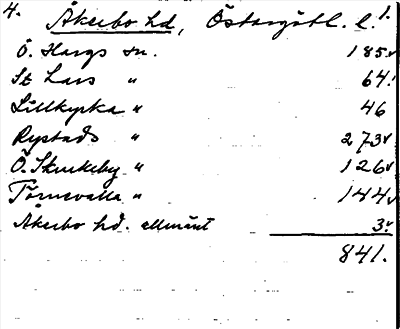 4. Åkerbo hd, Östergötl. l. 1.
Ö. Hargs sn. 185 v
St Lars " 64.
Lillkyrka " 46
Rystads " 273 v
Ö. Skrukeby " 126 v
Törnevalla " 144 v
Åkerbo hd. allmänt 3 v
841.